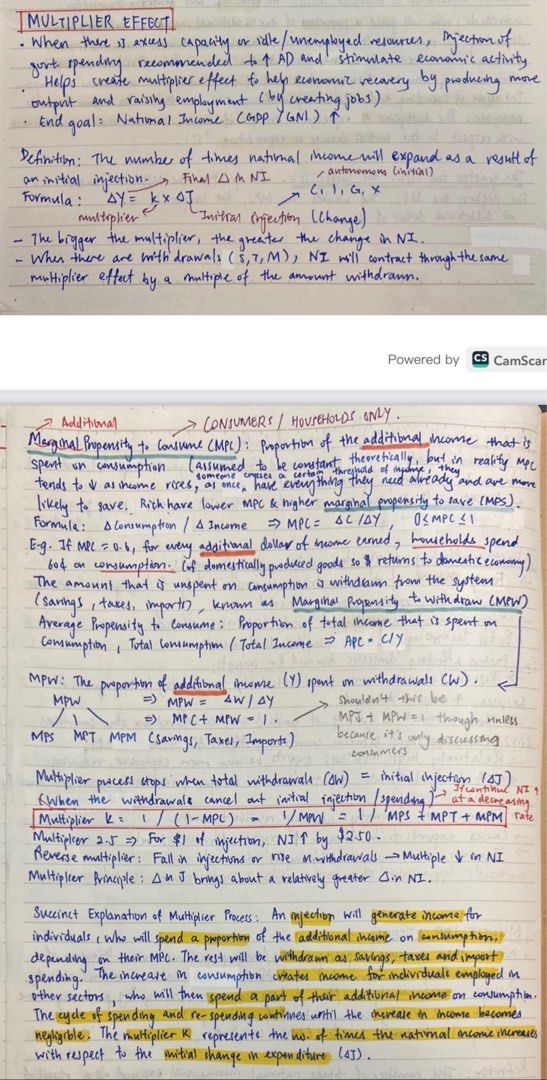 MULTIPLIER EFFECT
• When there is excess capacity or idle/unemployed resources, injection of
govt spending recommended to ↑ AD and stimulate economic activity
• Helps create multiplier effect to help economic recovery by producing more
output and raising employment (by creating jobs)
• End goal: National Income (GDP / GNI) ↑.
Definition: The number of times national income will expand as a result of
an initial injection. → Final Δ in NI autonomous (initial)
Formula: ΔY = k x ΔJ → C, I, G, X
multiplier Initial injection (change)
- The bigger the multiplier, the greater the change in NI.
- When there are withdrawals (S, T, M), NI will contract through the same
multiplier effect by a multiple of the amount withdrawn.
Powered by CS CamScan
→ Additional → CONSUMERS / HOUSEHOLDS ONLY.
Marginal Propensity to Consume (MPC): Proportion of the additional income that is
spent on consumption (assumed to be constant theoretically, but in reality MPC
someone crosses a certain threshold of income, they
tends to ↓ as income rises, as once, have everything they need already and are more
likely to save. Rich have lower MPC & higher marginal propensity to save (MPS).
Formula: Δ Consumption / Δ Income ⇒ MPC = ΔC/ΔY, 0 ≤ MPC ≤ 1
E.g. If MPC = 0.6, for every additional dollar of income earned, households spend
60¢ on consumption. (of domestically produced goods so $ returns to domestic economy)
The amount that is unspent on consumption is withdrawn from the system
(savings, taxes, imports), known as Marginal Propensity to Withdraw (MPW)
Average Propensity to Consume: Proportion of total income that is spent on
consumption, Total Consumption / Total Income ⇒ APC = C/Y
MPW: The proportion of additional income (Y) spent on withdrawals (W).
MPW ⇒ MPW = ΔW / ΔY Shouldn't this be
⇒ MPC + MPW = 1. MPJ + MPW = 1 though unless
MPS MPT MPM (Savings, Taxes, Imports) because it's only discussing
consumers
Multiplier process stops when total withdrawals (ΔW) = initial injection (ΔJ)
(When the withdrawals cancel out initial injection / spending) → If continue NI ↑
at a decreasing rate
Multiplier k = 1 / (1-MPC) = 1/MPW = 1 / MPS + MPT + MPM
Multiplier 2.5 ⇒ For $1 of injection, NI ↑ by $2.50.
Reverse multiplier: Fall in injections or rise in withdrawals → Multiple ↓ in NI
Multiplier Principle: Δ in J brings about a relatively greater Δ in NI.
Succinct Explanation of Multiplier Process: An injection will generate income for
individuals, who will spend a proportion of the additional income on consumption,
depending on their MPC. The rest will be withdrawn as savings, taxes and import
spending. The increase in consumption creates income for individuals employed in
other sectors, who will then spend a part of their additional income on consumption.
The cycle of spending and re-spending continues until the increase in income becomes
negligible. The multiplier K represents the no. of times the national income increases
with respect to the initial change in expenditure (ΔJ).